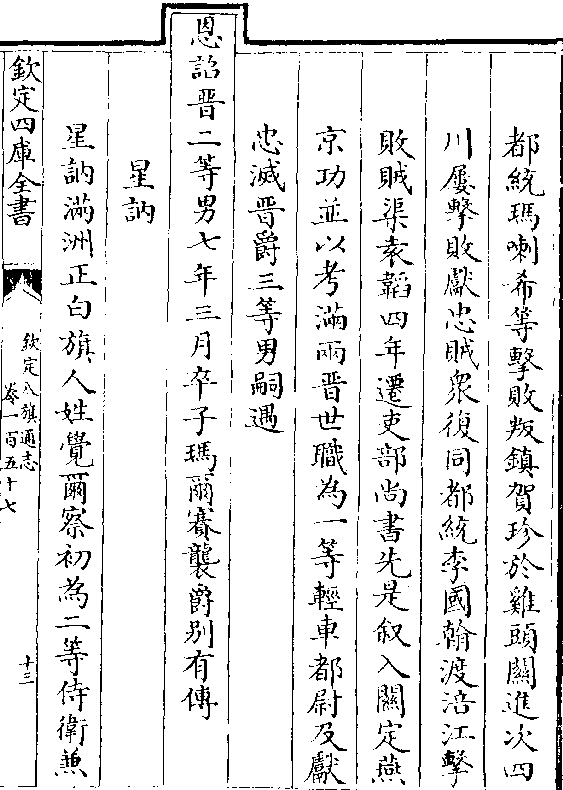 都統瑪喇希等擊敗叛鎮賀珍於雞頭關進次四
川屢擊敗獻忠賊衆復同都統李國翰渡涪江擊
敗賊渠袁韜四年遷吏部尚書先是叙入關定燕
京功並以考滿兩晋世職為一等輕車都尉及獻
忠滅晋爵三等男嗣遇
恩詔晋二等男七年三月卒子瑪爾賽襲爵别有傳
星訥
星訥滿洲正白旗人姓覺爾察初為二等侍衛兼
欽定四庫全書
欽定八旗通志
卷一百五十七
十三